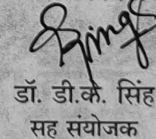 डॉ. डी.के. सिंह
सह संयोजक